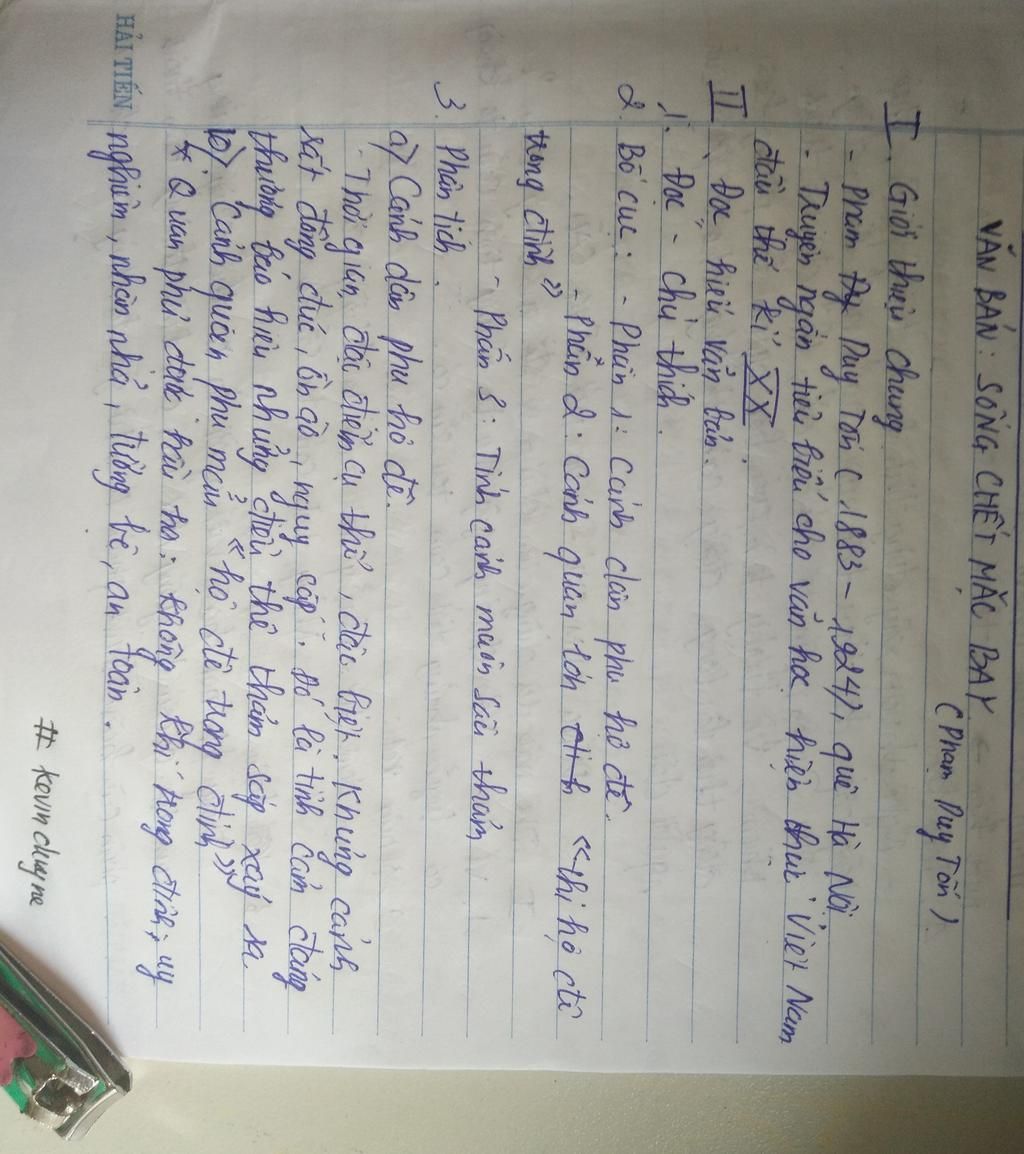 VĂN BẢN: SỐNG CHẾT MẶC BAY
(Phạm Duy Tốn).
I. Giới thiệu chung
- Phạm Duy Tốn (1883 - 1924), quê Hà Nội
- Truyện ngắn tiêu biểu cho văn học hiện thực Việt Nam
đầu thế kỉ XX
II. Đọc hiểu văn bản.
1. Đọc - chú thích.
2. Bố cục: - Phần 1: Cảnh dân phu hộ đê.
- Phần 2: Cảnh quan lớn "đi hộ đê
trong đình"
- Phần 3: Tình cảnh muôn sầu thảm
3. Phân tích.
a) Cảnh dân phu hộ đê.
- Thời gian, địa điểm cụ thể, đặc biệt. Khung cảnh
rất đông đúc, ồn ào, nguy cấp. Đó là tình cảm đáng
thương báo hiệu những điều thê thảm sắp xảy ra
b) Cảnh quan phụ mẫu "hộ đê trong đình"
* Quan phủ được hầu hạ: không khí trong đình, uy
nghiêm, nhàn nhã, tường bê, an toàn.
HẢI TIẾN
# kevin chayne